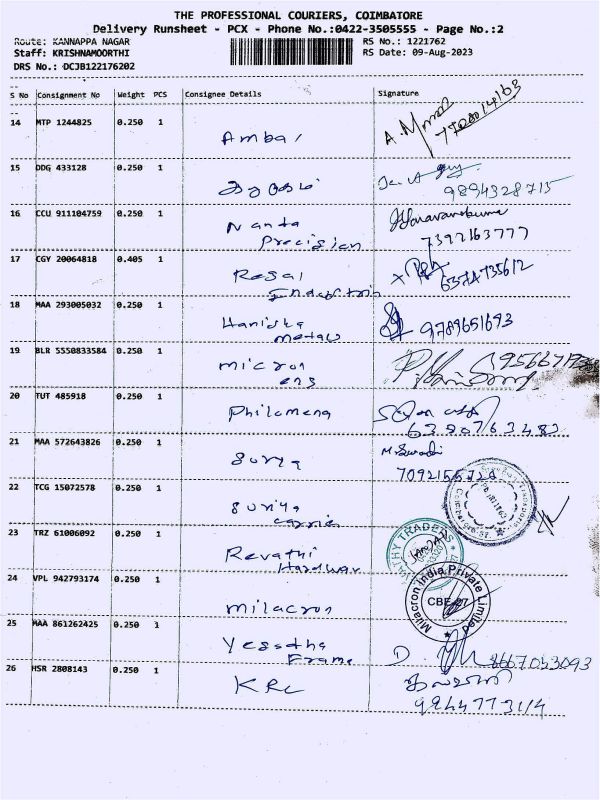 THE PROFESSIONAL COURIERS, COIMBATORE
Delivery Runsheet - PCX - Phone No.:0422-3505555 - Page No.:2
Route: KANNAPPA NAGAR
RS No.: 1221762
Staff: KRISHNAMOORTHI
RS Date: 09-Aug-2023
DRS No.: DCJB122176202
S No Consignment No Weight PCS Consignee Details Signature
14 MTP 1244825 0.250 1 Ambal
15 DDG 433128 0.250 1
9894328715
16 CCU 911104759 0.250 1 Nanda
Precision
7392163777
17 CGY 20064818 0.405 1 Rosal
Industries
6374735612
18 MAA 293005032 0.250 1 Haniska
metals
9789651693
19 BLR 5550833584 0.250 1 micron
eng
20 TUT 485918 0.250 1 Philomena
6380763483
21 MAA 572643826 0.250 1 surya
7092155720
22 TCG 15072578 0.250 1 suriya
carrier
23 TRZ 61006092 0.250 1 Revathi
Hardwar
TRADERS
24 VPL 942793174 0.250 1 milacron
Milacron India Private Limited
CBE-07
25 MAA 861262425 0.250 1 Yessdha
Frame
D. 8667053093
26 HSR 2808143 0.250 1 KRC
9244773114